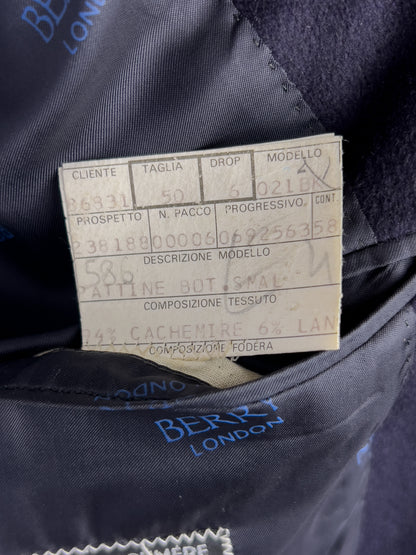 BERRY
LONDON
CLIENTE TAGLIA DROP MODELLO
86831 50 6 021B
PROSPETTO N. PACCO PROGRESSIVO CONT
238188 00006 069256358
DESCRIZIONE MODELLO
586
PATTINE BOT.SMAL
COMPOSIZIONE TESSUTO
94% CACHEMIRE 6% LAN
COMPOSIZIONE FODERA
LONDON
BERRY
LONDON